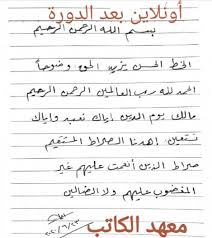 أونلاين بعد الدورة
بسم الله الرحمن الرحيم
الخط الحسن يزيد الحق وضوحاً
الحمد لله رب العالمين الرحمن الرحيم
مالك يوم الدين إياك نعبد وإياك
نستعين إهدنا الصراط المستقيم
صراط الذين أنعمت عليهم غير
المغضوب عليهم ولا الضالين
معهد الكاتب